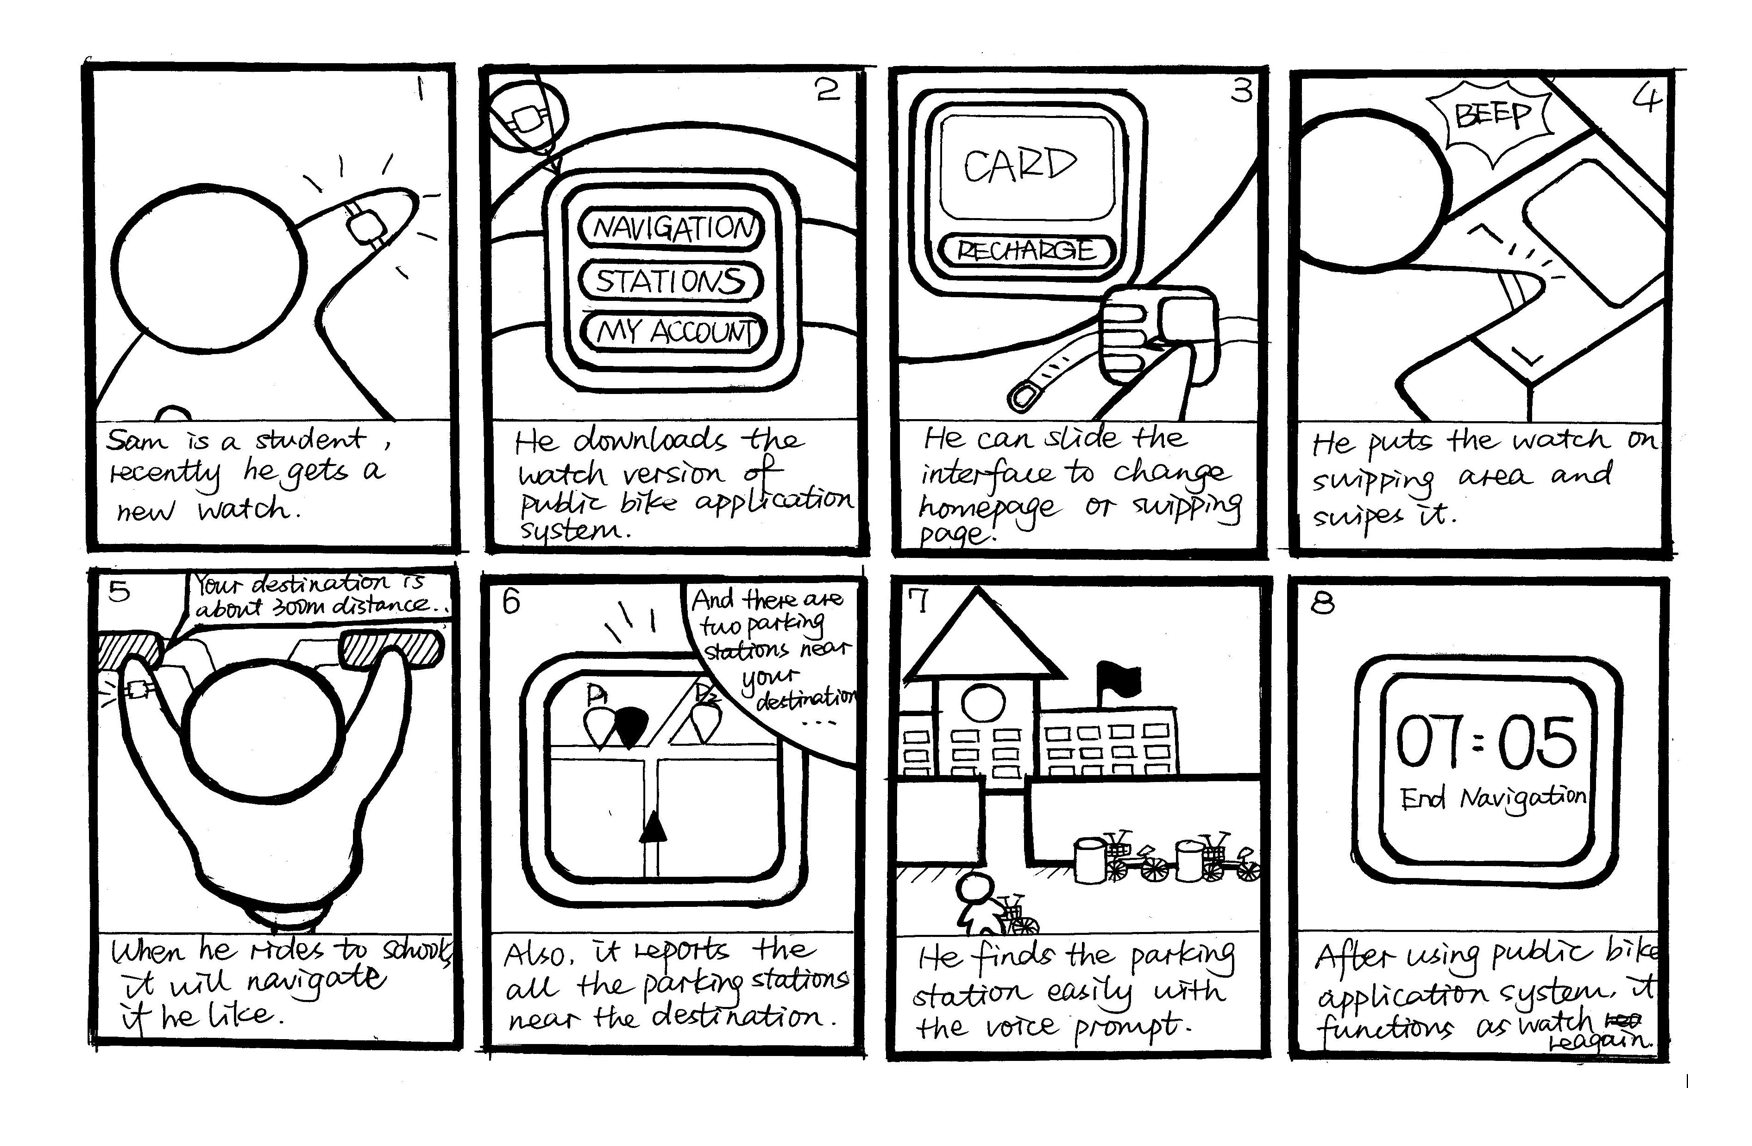 1
Sam is a student,
recently he gets a
new watch.
2
NAVIGATION
STATIONS
MY ACCOUNT
He downloads the
watch version of
public bike application
system.
3
CARD
RECHARGE
He can slide the
interface to change
homepage or swipping
page.
4
BEEP
He puts the watch on
swipping area and
swipes it.
5
Your destination is
about 300m distance..
When he rides to school,
it will navigate
if he like.
6
And there are
two parking
stations near
your
destination
...
P1
P2
Also, it reports the
all the parking stations
near the destination.
7
He finds the parking
station easily with
the voice prompt.
8
07:05
End Navigation
After using public bike
application system, it
functions as watch
reagain.